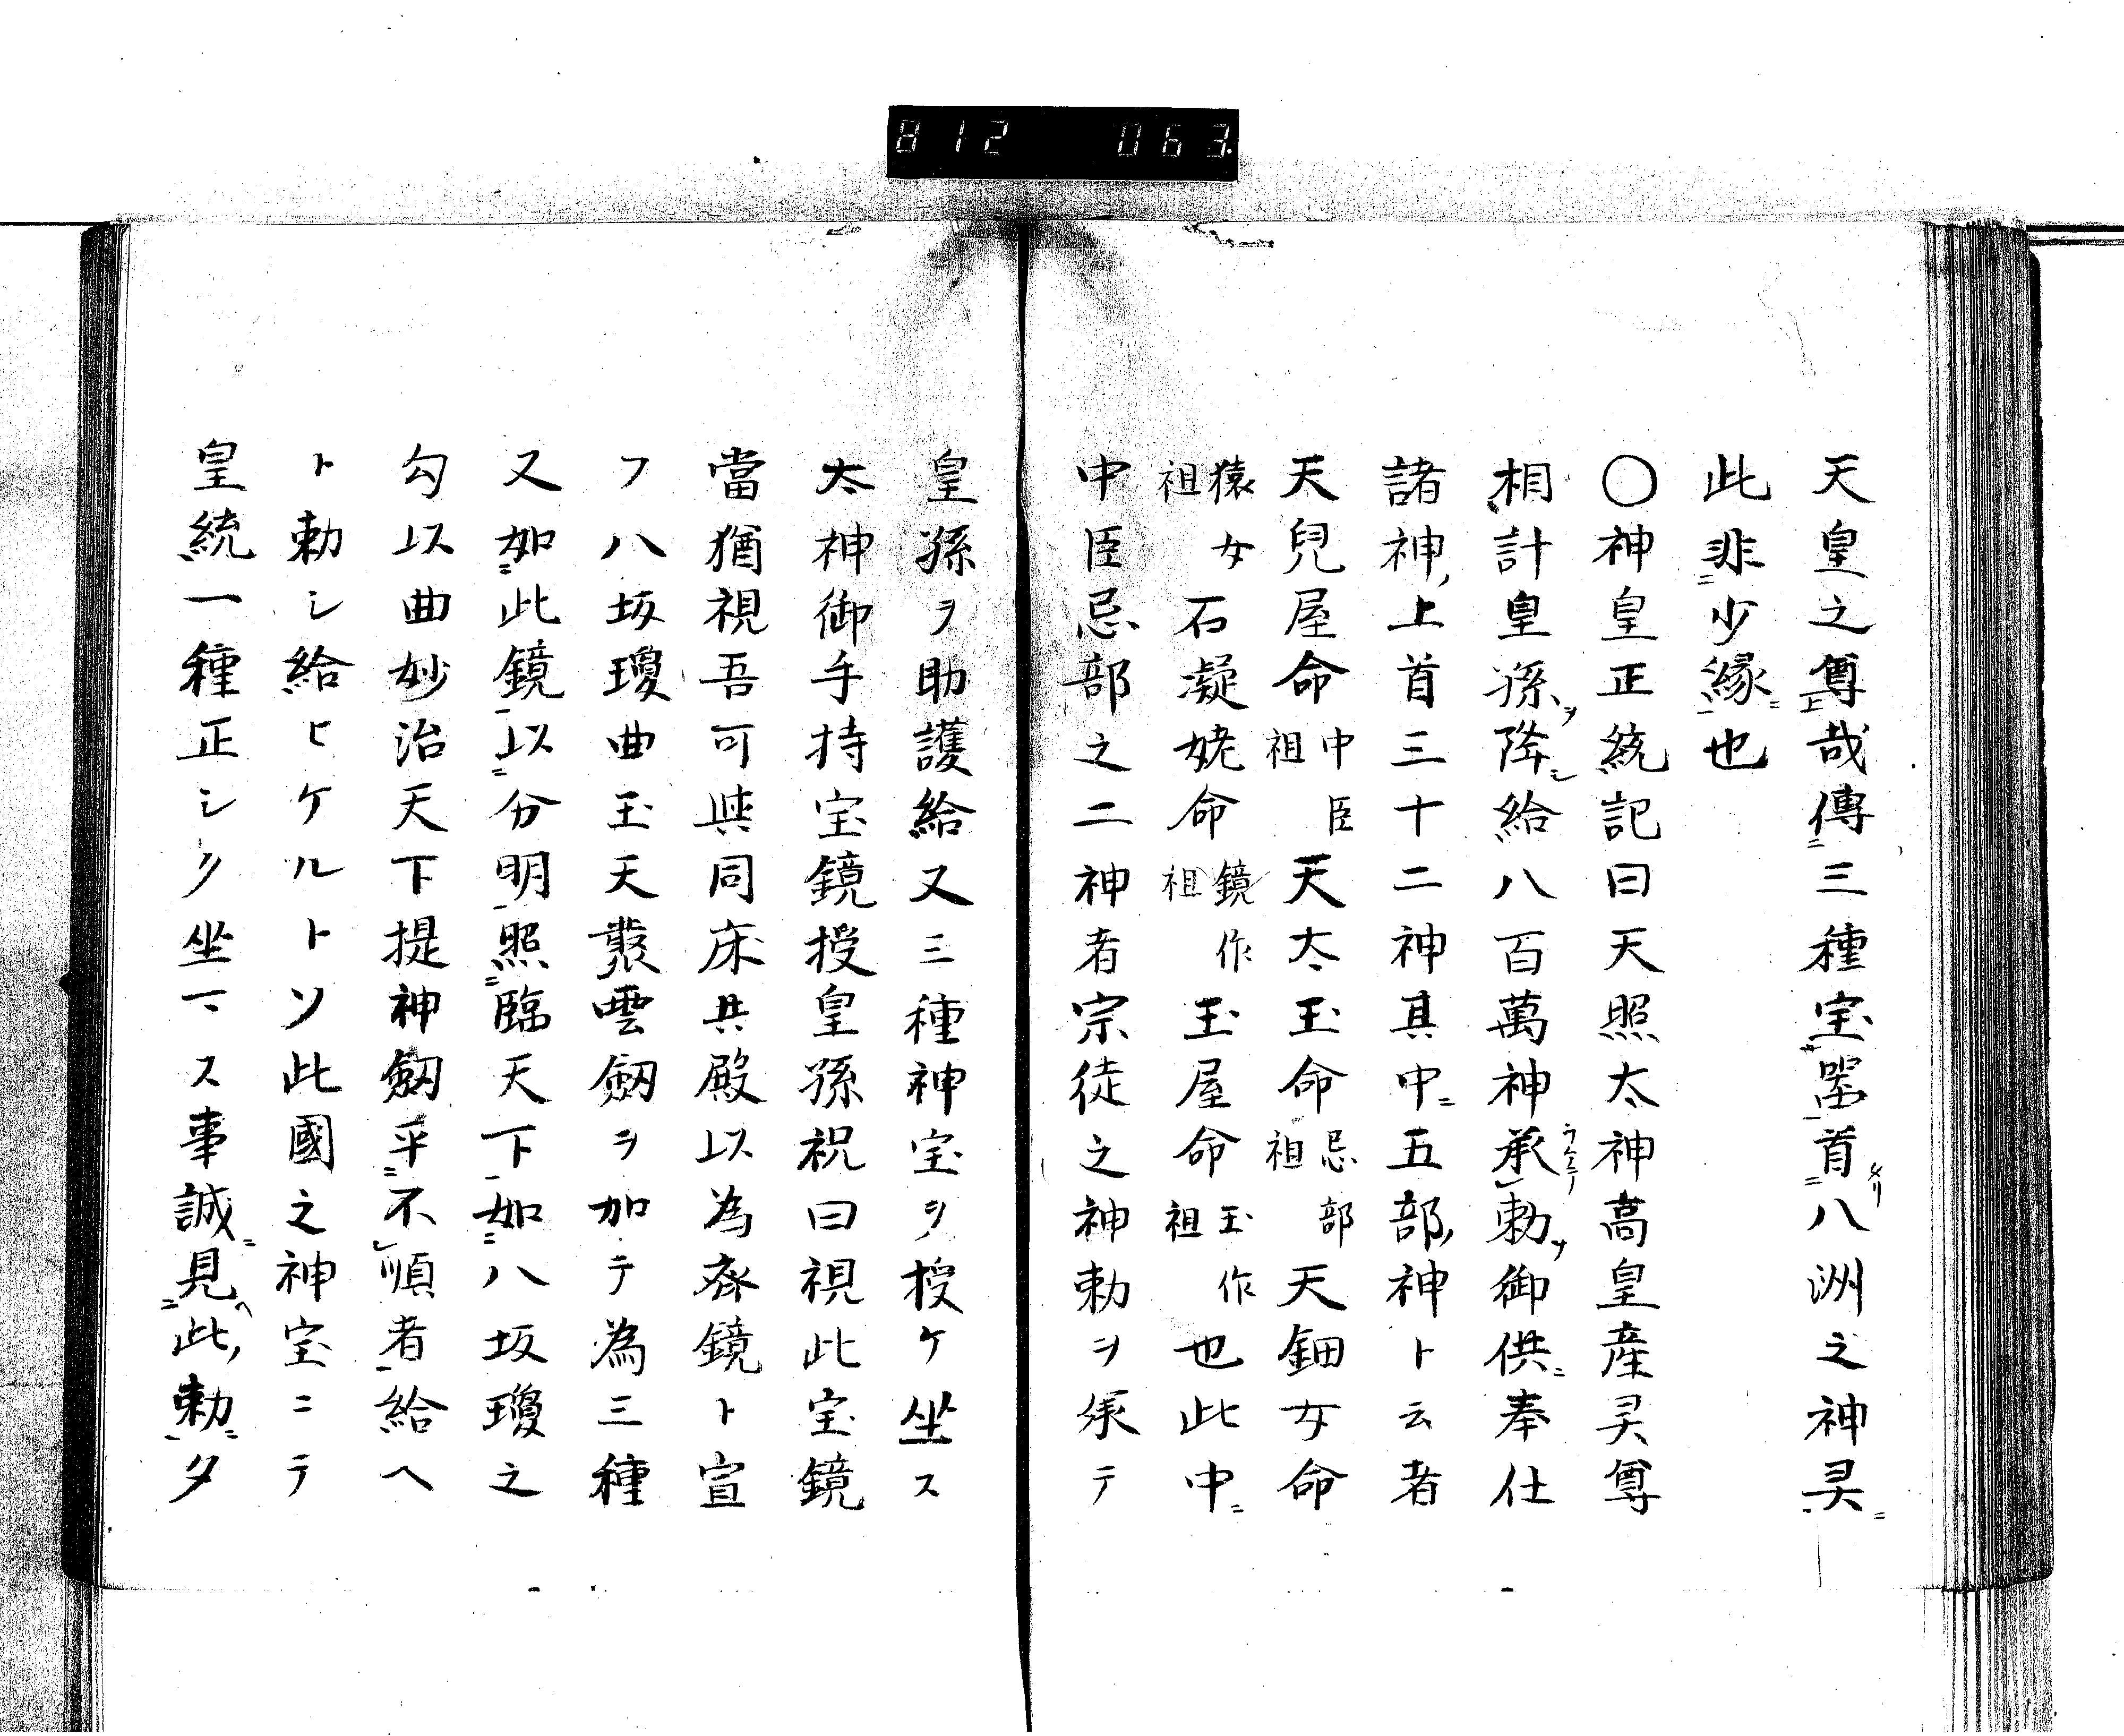 812 063
天皇之尊哉傳三種宝噐首八洲之神灵
此非少縁也
〇神皇正統記曰天照太神高皇産灵尊
相計皇孫ヲ降シ給八百萬神承勅ヲ御供ニ奉仕
諸神上首三十二神其中ニ五部神ト云者
天兒屋命中臣祖天太玉命忌部祖天鈿女命
猿女祖石凝姥命鏡作祖玉屋命玉作祖也此中ニ
中臣忌部之二神者宗徒之神勅ヲ承テ
皇孫ヲ助護給又三種神宝ヲ授ケ坐ス
太神御手持宝鏡授皇孫祝曰視此宝鏡
當猶視吾可與同床共殿以為齊鏡ト宣
フ八坂瓊曲玉天叢雲劔ヲ加テ為三種
又如此鏡以分明照臨天下如八坂瓊之
勾以曲妙治天下提神劔平不順者給ヘ
ト勅シ給ヒケルトソ此國之神宝ニテ
皇統一種正シク坐マス事誠見此勅タ